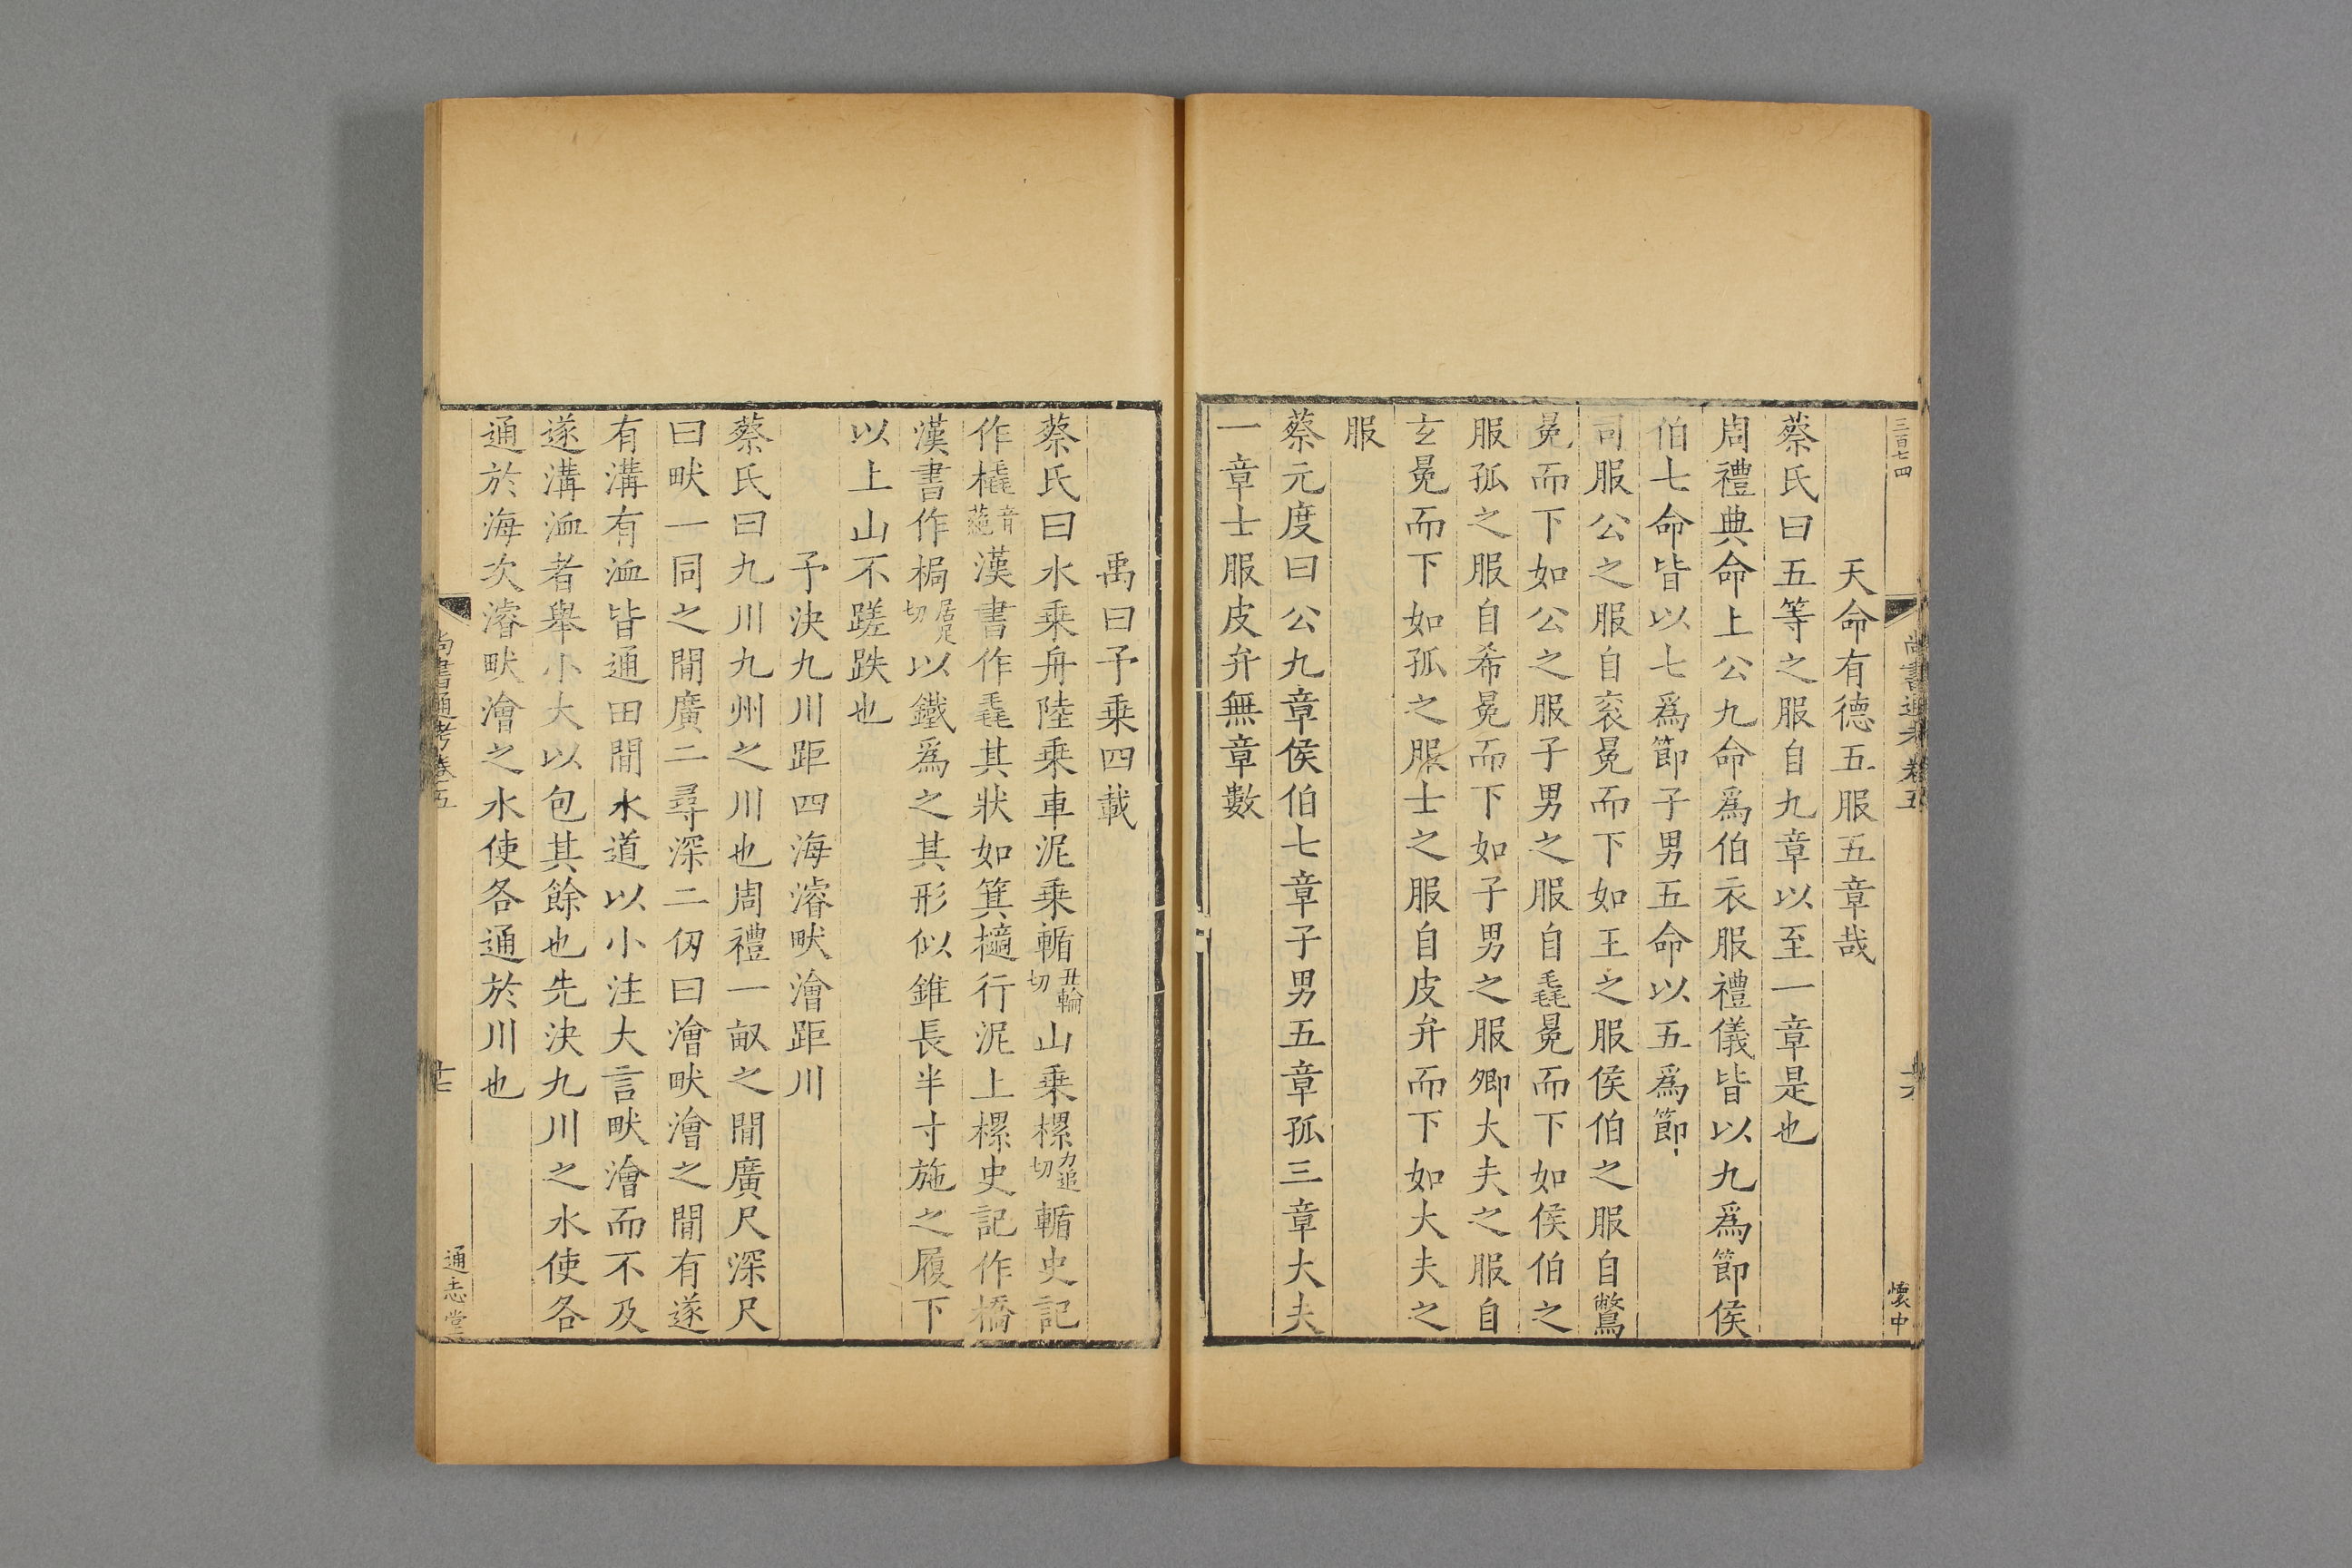 三百七四
尚書通考卷五
懷中
天命有德五服五章哉
蔡氏曰五等之服自九章以至一章是也
周禮典命上公九命爲伯衣服禮儀皆以九爲節侯
伯七命皆以七爲節子男五命以五爲節
司服公之服自衮冕而下如王之服侯伯之服自鷩
冕而下如公之服子男之服自毳冕而下如侯伯之
服孤之服自希冕而下如子男之服卿大夫之服自
玄冕而下如孤之服士之服自皮弁而下如大夫之
服
蔡元度曰公九章侯伯七章子男五章孤三章大夫
一章士服皮弁無章數
禹曰予乗四載
蔡氏曰水乗舟陸乗車泥乗輴丑輪切山乗樏力追切輴史記
作橇音蕝漢書作毳其狀如箕擿行泥上樏史記作橋
漢書作梮居足切以鐵爲之其形似錐長半寸施之履下
以上山不蹉跌也
予決九川距四海濬畎澮距川
蔡氏曰九川九州之川也周禮一畝之閒廣尺深尺
曰畎一同之閒廣二尋深二仞曰澮畎澮之閒有遂
有溝有洫皆通田閒水道以小注大言畎澮而不及
遂溝洫者舉小大以包其餘也先決九川之水使各
通於海次濬畎澮之水使各通於川也
尚書通考卷五
十七
通志堂